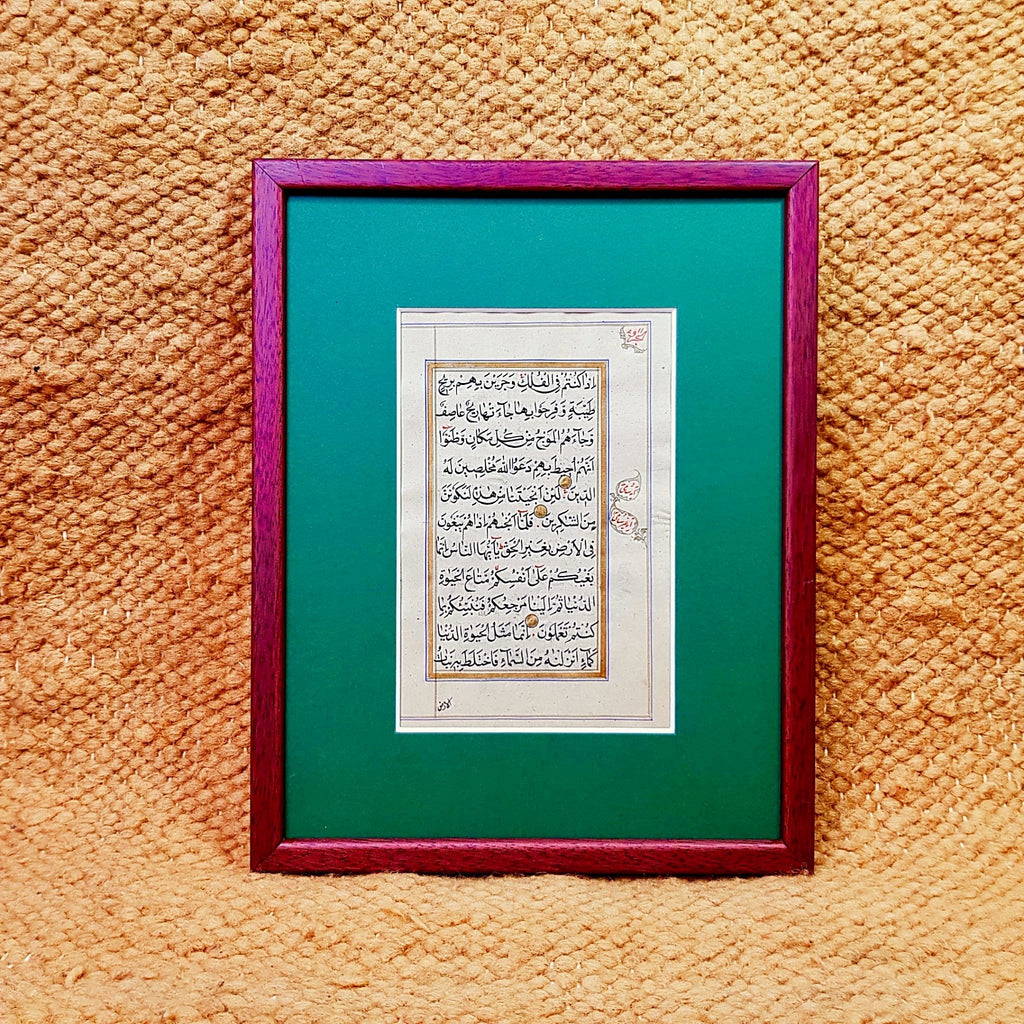 اِذَا كُنْتُمْ فِى الْفُلْكِ وَجَرَيْنَ بِهِمْ بِرِيْحٍ
طَيِّبَةٍ وَفَرِحُوا بِهَا جَآءَتْهَا رِيْحٌ عَاصِفٌ
وَجَآءَهُمُ الْمَوْجُ مِنْ كُلِّ مَكَانٍ وَظَنُّوْا
اَنَّهُمْ اُحِيْطَ بِهِمْ دَعَوُا اللّٰهَ مُخْلِصِيْنَ لَهُ
الدِّيْنَ لَئِنْ اَنْجَيْتَنَا مِنْ هٰذِهٖ لَنَكُوْنَنَّ
مِنَ الشّٰكِرِيْنَ فَلَمَّا اَنْجٰهُمْ اِذَا هُمْ يَبْغُوْنَ
فِى الْاَرْضِ بِغَيْرِ الْحَقِّ يٰۤاَيُّهَا النَّاسُ اِنَّمَا
بَغْيُكُمْ عَلٰۤى اَنْفُسِكُمْ مَتَاعَ الْحَيٰوةِ
الدُّنْيَا ثُمَّ اِلَيْنَا مَرْجِعُكُمْ فَنُنَبِّئُكُمْ بِمَا
كُنْتُمْ تَعْمَلُوْنَ اِنَّمَا مَثَلُ الْحَيٰوةِ الدُّنْيَا
كَمَآءٍ اَنْزَلْنٰهُ مِنَ السَّمَآءِ فَاخْتَلَطَ بِهٖ نَبَاتُ